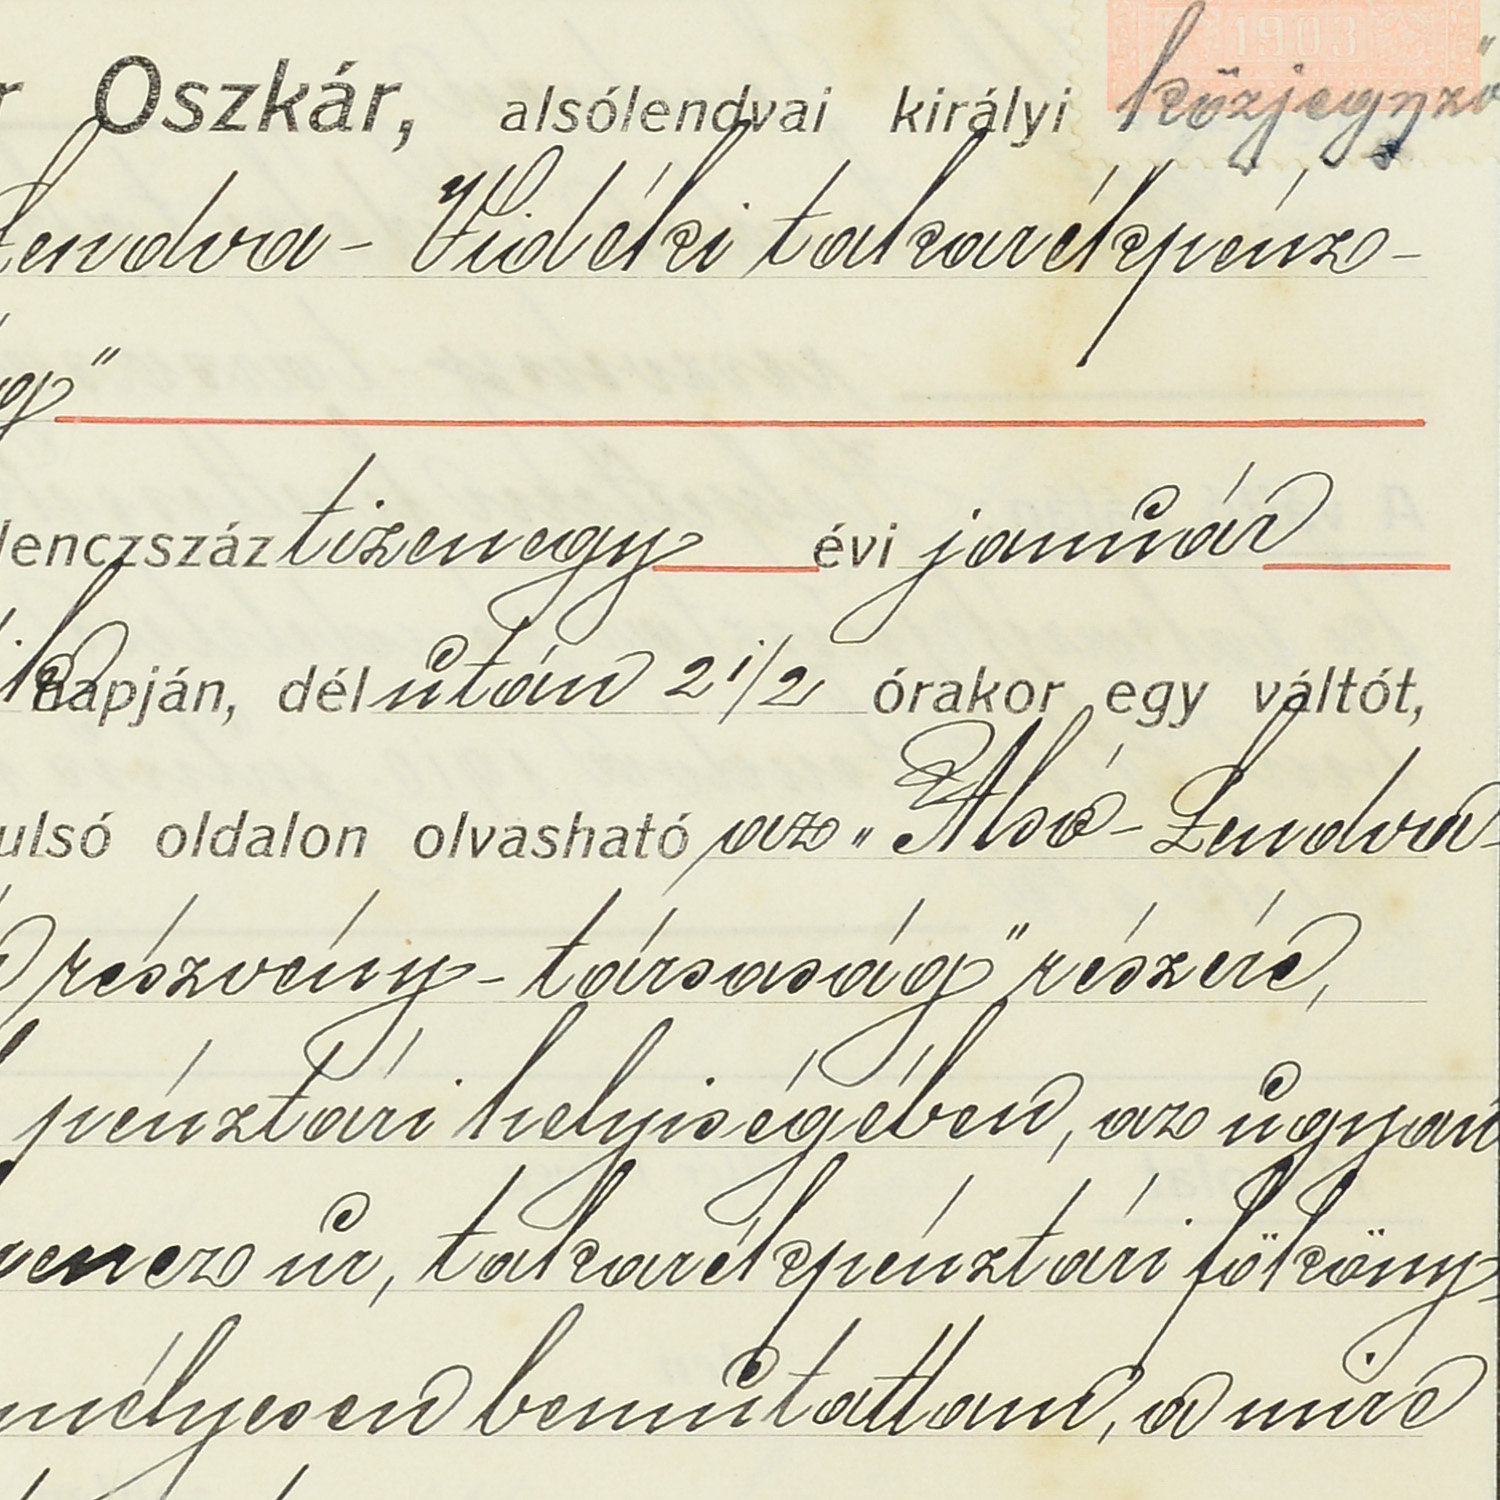 r Oszkár, alsólendvai királyi közjegyző
1903
Lendva-Vidéki takarékpénz-
g"
lenczszáz tizenegy évi január
ik napján, dél után 2 1/2 órakor egy váltót,
ulsó oldalon olvasható az „Alsó-Lendva-
részvény-társaság" részére,
pénztári helyiségében, az ugyan
rencz úr, takarékpénztári főköny-
mélyesen bemutattam, a mire